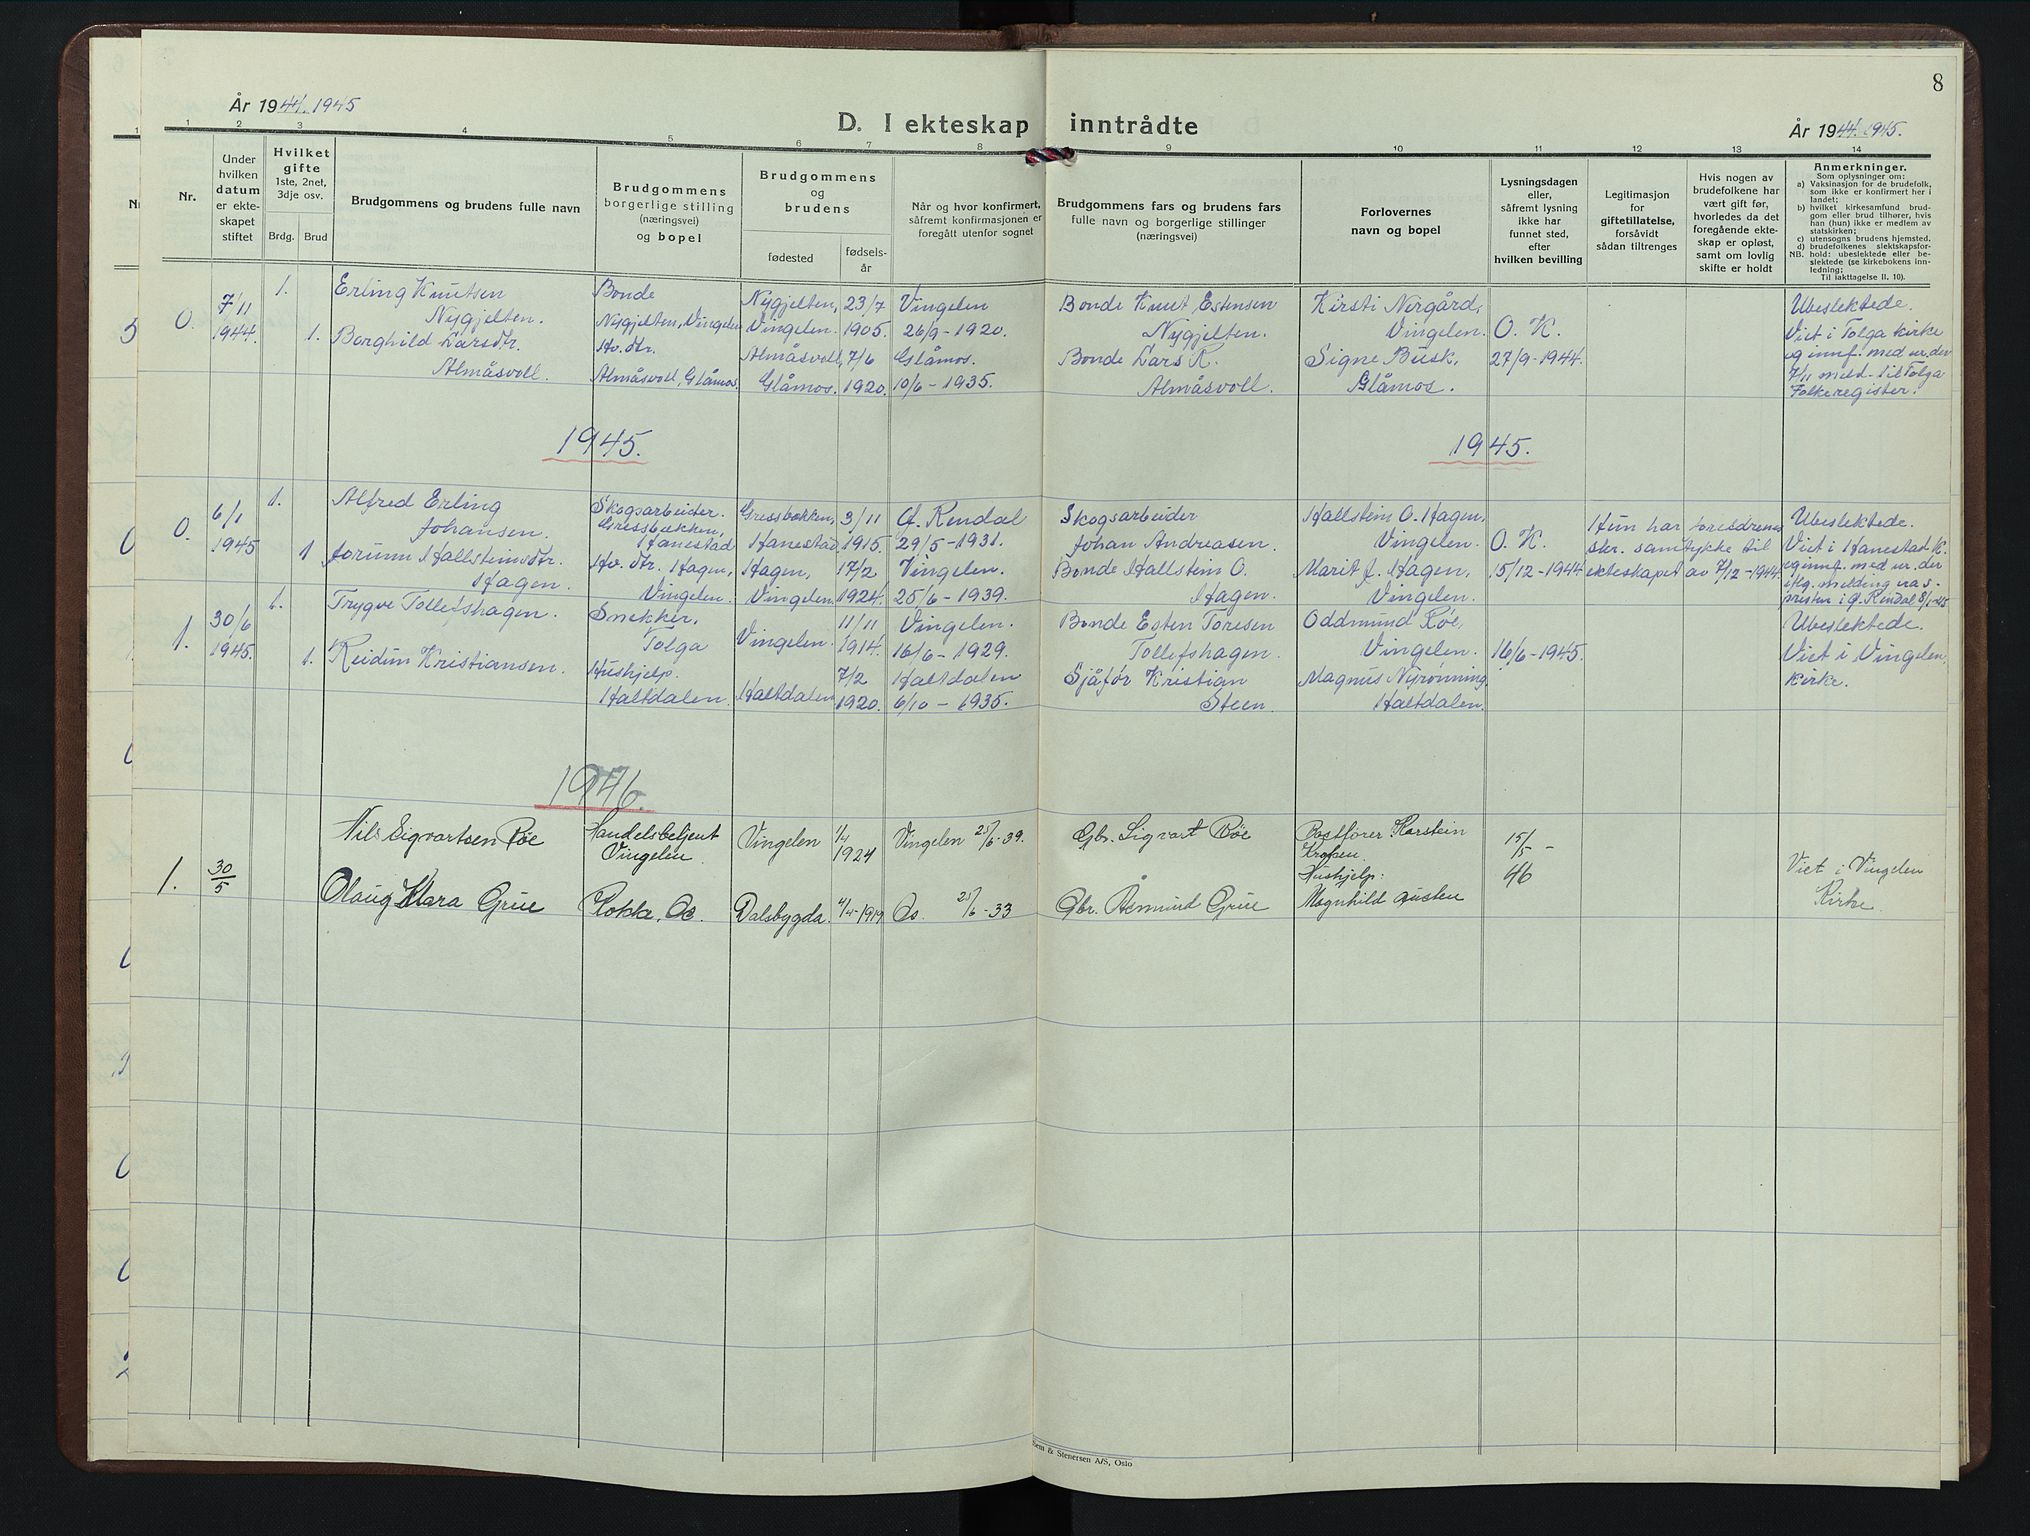 8
År 1944. 1945
D. I ekteskap inntrådte
År 1944. 1945.
1 2 3 4 5 6 7 8 9 10 11 12 13 14
Nr.
Under
hvilken
datum
er ekte-
skapet
stiftet
Hvilket
gifte
1ste, 2net,
3dje osv.
Brdg. Brud
Brudgommens og brudens fulle navn
Brudgommens
borgerlige stilling
(næringsvei)
og bopel
Brudgommens
og
brudens
fødested
fødsels-
år
Når og hvor konfirmert,
såfremt konfirmasjonen er
foregått utenfor sognet
Brudgommens fars og brudens fars
fulle navn og borgerlige stillinger
(næringsvei)
Forlovernes
navn og bopel
Lysningsdagen
eller,
såfremt lysning
ikke har
funnet sted,
efter
hvilken bevilling
Legitimasjon
for
giftetillatelse,
forsåvidt
sådan tiltrenges
Hvis nogen av
brudefolkene har
vært gift før,
hvorledes da det
foregående ekte-
skap er opløst,
samt om lovlig
skifte er holdt
Anmerkninger.
Som oplysninger om:
a) Vaksinasjon for de brudefolk,
som ikke er konfirmert her i
landet;
b) hvilket kirkesamfund brud-
gom eller brud tilhører, hvis
han (hun) ikke er medlem av
statskirken;
c) utensogns brudens hjemsted.
d) brudefolkenes slektskapsfor-
NB. hold: ubeslektede eller be-
slektede (se kirkebokens inn-
ledning;
Til iakttagelse II. 10).
0. 7/11 1944. 1. 1.
Erling Knutsen
Nygjelten.
Borghild Larsdtr.
Almåsvoll.
Bonde
Nygjelten, Vingelen
Hv. dtr.
Almåsvoll, Glåmos.
Nygjelten,
Vingelen.
Almåsvoll,
Glåmos.
23/7
1905.
7/6
1920.
Vingelen
26/9 - 1920.
Glåmos.
10/6 - 1935.
Bonde Knut Estensen
Nygjelten.
Bonde Lars K.
Almåsvoll.
Kirsti Norgård,
Vingelen.
Signe Busk,
Glåmos.
O. K.
27/9-1944.
Ubeslektede.
Viet i Tolga kirke
og innf. med ur. der
7/11 meld. til Tolga
Folkeregister.
1945. 1945.
0. 6/1 1945 1. 1
Alfred Erling
Johansen.
Jorunn Hallsteinsdtr.
Hagen.
Skogsarbeider.
Gressbekken,
Hanestad
Hv. dtr. Hagen,
Vingelen.
Gressbekken,
Hanestad
Hagen,
Vingelen
3/11
1915.
17/2
1924.
Ø. Rendal
29/5-1931.
Vingelen.
25/6 - 1939.
Skogsarbeider
Johan Andreasen.
Bonde Hallstein O.
Hagen.
Hallstein O. Hagen,
Vingelen.
Marit J. Hagen,
Vingelen.
O. K.
15/12-1944
Hun har foreldrenes
skr. samtykke til
ekteskapet av 7/12-1944.
Ubeslektede.
Viet i Hanestad K.
og innf. med ur. der
ikg. melding
presten i Ø. Rendal 8/1-45
1. 30/6 1945. 1. 1.
Trygve Tollefshagen.
Reidun Kristiansen.
Snekker,
Tolga
Hushjelp.
Haltdalen.
Vingelen.
Haltdalen
11/11
1914.
7/2
1920.
Vingelen.
16/6 - 1929.
Haltdalen
6/10 - 1935.
Bonde Esten Toresen
Tollefshagen.
Sjåfør Kristian
Steen.
Oddmund Røe,
Vingelen.
Magnus Nyrønning
Haltdalen.
16/6-1945.
Ubeslektede.
Viet i Vingelen
kirke.
1946.
1. 30/5
Nils Sigvartsen Røe
Olaug Klara Grue
Handelsbetjent
Vingelen.
Kokke, Os.
Vingelen
Dalsbygda.
1/4
1924
4/4-1919
Vingelen 25/6-39.
Os. 25/6-33
Gbr. Sigvart Røe
Gbr. Åsmund Grue
Postfører Karstein
Kroken.
Hushjelp:
Magnhild Austen
15/5 -
46
Viet i Vingelen
Kirke
Stenersen A/S, Oslo